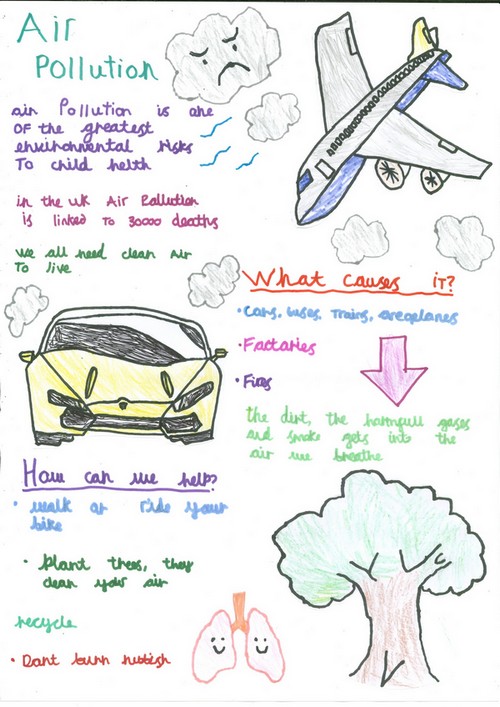 Air
Pollution
air Pollution is one
OF the greatest
environmental risks
To child helth
in the UK Air Pollution
is linked To 30000 deaths
we all need clean Air
To live
What causes iT?
• Cars, buses, Trains, areoplanes
• Factaries
• Fires
the dirt, the harmfull gases
and smoke gets into the
air we breathe
How can we help?
• walk or ride your
bike
• Plant trees, they
clean your air
recycle
• Dont burn rubbish